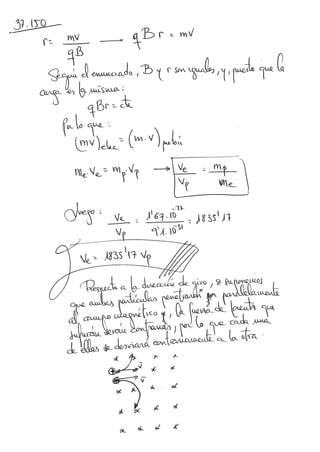 37.150
r = mv / qB → qBr = mv
Según el enunciado, B y r son iguales, y, puesto que la
carga es la misma:
qBr = cte
Por lo que:
(mv)elec = (m·v)protón
me·Ve = mp·Vp → Ve / Vp = mp / me
Luego: Ve / Vp = 1'67·10^-27 / 9'1·10^-31 = 1835'17
Ve = 1835'17 Vp
Respecto a la dirección de giro, si suponemos
que ambas partículas penetrarán paralelamente
al campo magnético y, la fuerza de Lorentz que
sufrirán serán contrarias, por lo que cada una
de ellas se desviará contrariamente a la otra.
x x x x
+ v
- v
x x x
x x x x
x x x